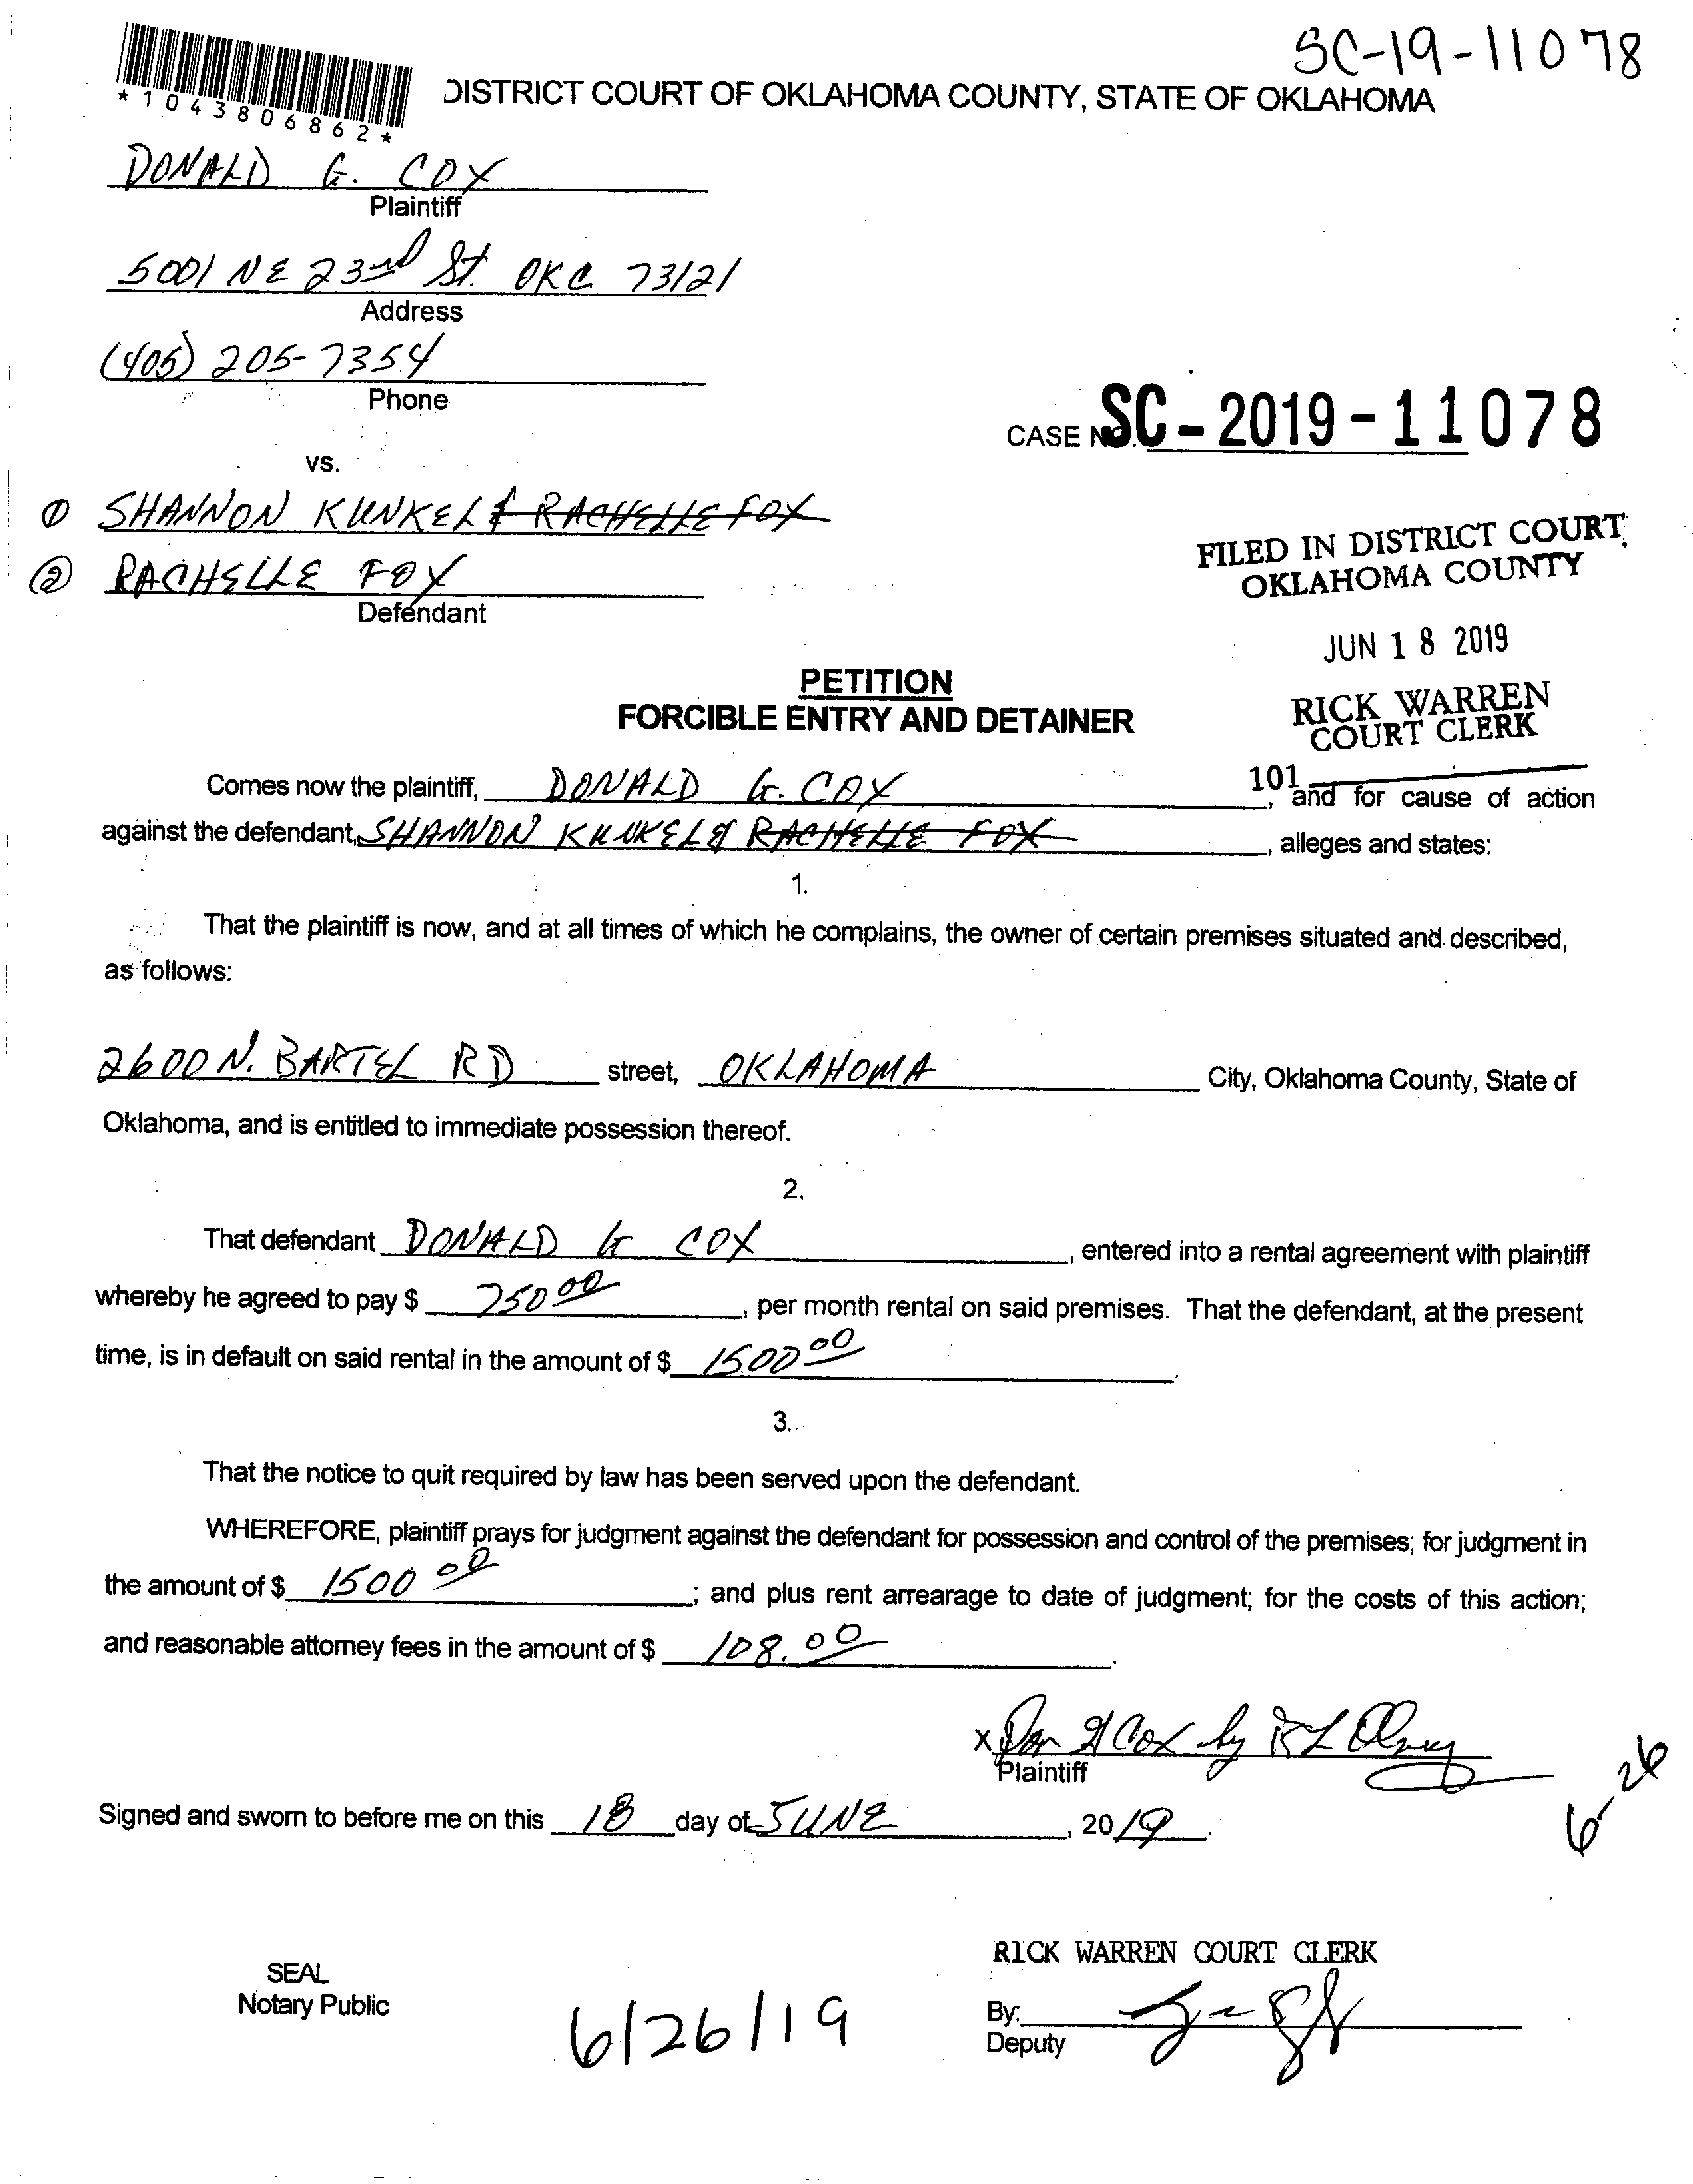 SC-19-11078
*1043806862*
DISTRICT COURT OF OKLAHOMA COUNTY, STATE OF OKLAHOMA
DONALD G. COX
Plaintiff
5001 NE 23rd St. OKC 73121
Address
(405) 205-7354
Phone
CASE NO. SC-2019-11078
vs.
① SHANNON KUNKEL & RACHELLE FOX
② RACHELLE FOX
Defendant
FILED IN DISTRICT COURT
OKLAHOMA COUNTY
JUN 18 2019
RICK WARREN
COURT CLERK
101
PETITION
FORCIBLE ENTRY AND DETAINER
Comes now the plaintiff, DONALD G. COX, and for cause of action
against the defendant, SHANNON KUNKEL & RACHELLE FOX, alleges and states:
1.
That the plaintiff is now, and at all times of which he complains, the owner of certain premises situated and described,
as follows:
2600 N. BARTEL RD street, OKLAHOMA City, Oklahoma County, State of
Oklahoma, and is entitled to immediate possession thereof.
2.
That defendant DONALD G COX, entered into a rental agreement with plaintiff
whereby he agreed to pay $ 750 00, per month rental on said premises. That the defendant, at the present
time, is in default on said rental in the amount of $ 1500 00.
3.
That the notice to quit required by law has been served upon the defendant.
WHEREFORE, plaintiff prays for judgment against the defendant for possession and control of the premises; for judgment in
the amount of $ 1500 00; and plus rent arrearage to date of judgment; for the costs of this action;
and reasonable attorney fees in the amount of $ 108.00.
x Don G Cox by
Plaintiff
6-26
Signed and sworn to before me on this 18 day of JUNE, 2019.
RICK WARREN COURT CLERK
SEAL
Notary Public
6/26/19
By:
Deputy